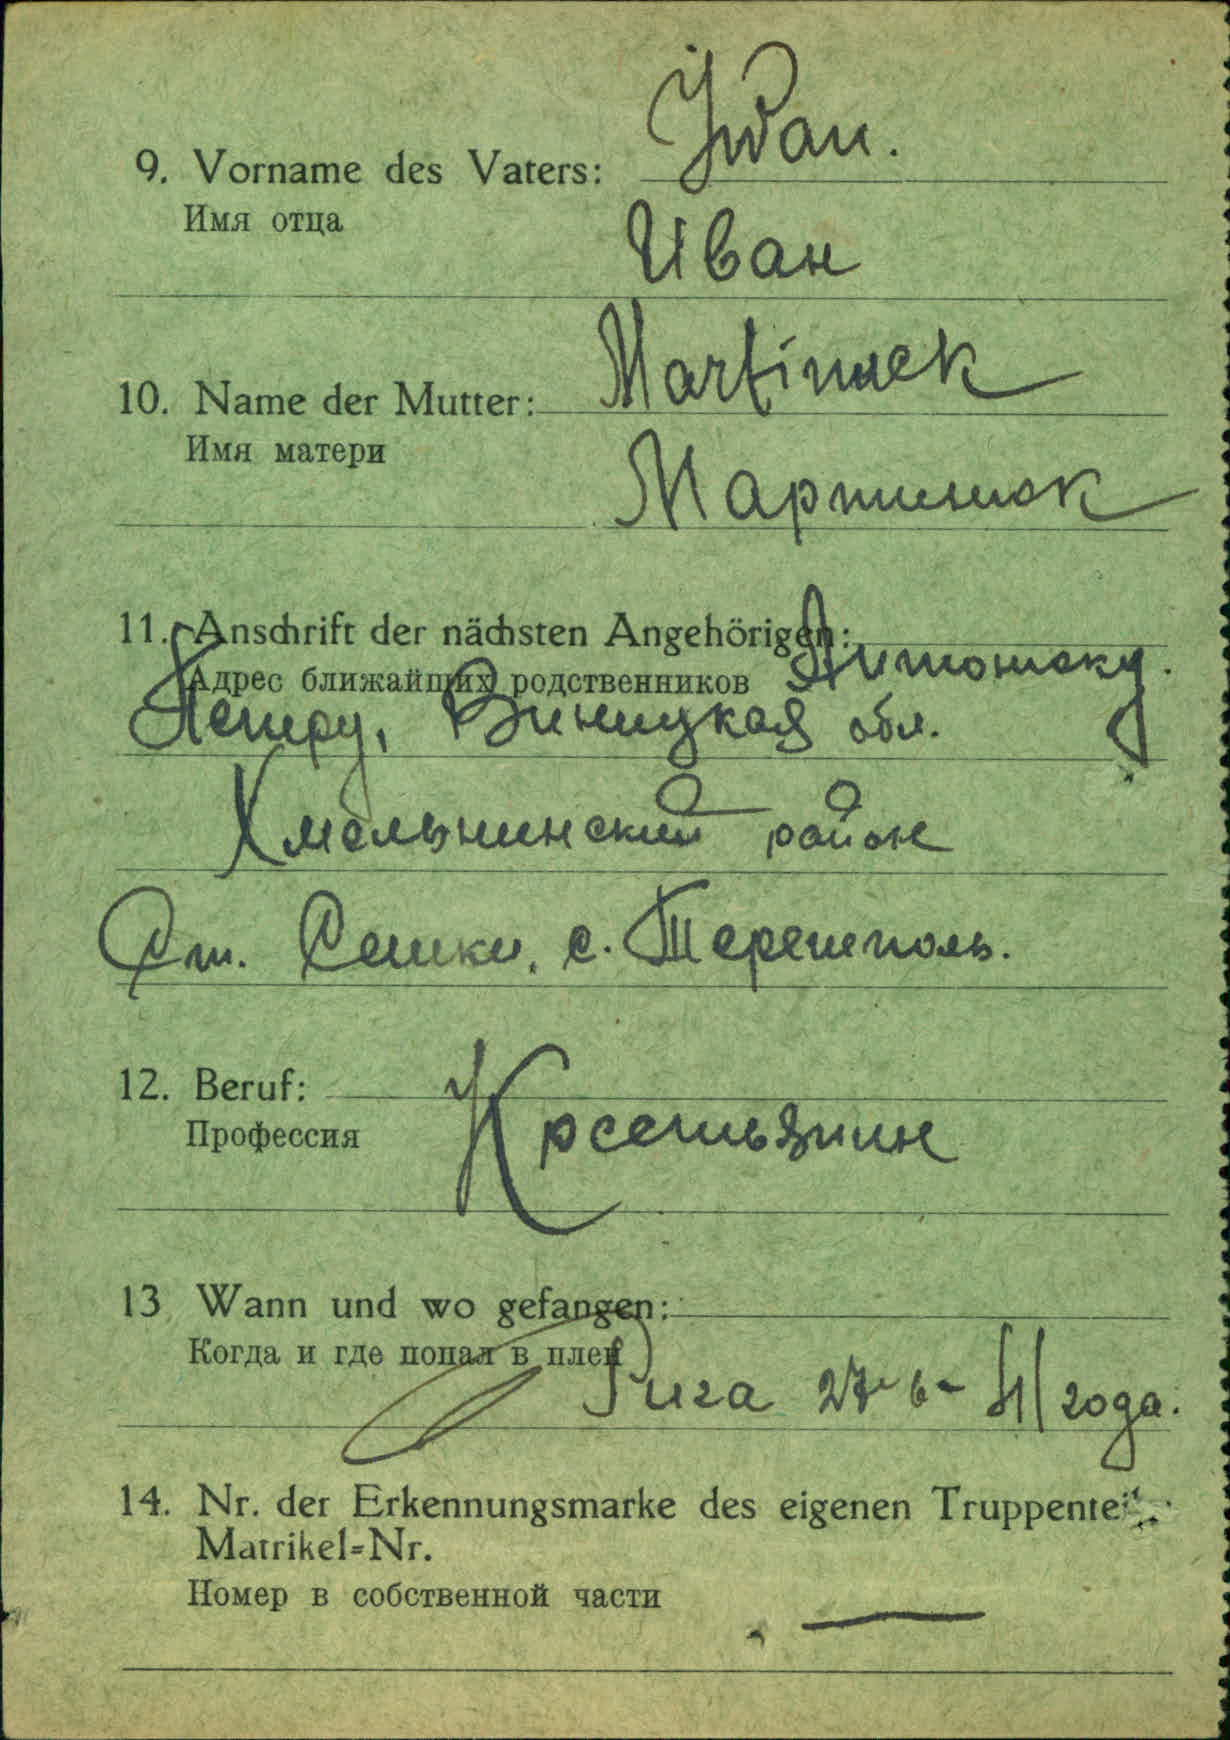 9. Vorname des Vaters: Iwan.
Имя отца
Иван
10. Name der Mutter: Martinuek
Имя матери
Мартинюк
11. Anschrift der nächsten Angehörigen:
Адрес ближайших родственников Антонюку
Петру, Виницкая обл.
Хмельнинский район
Ст. Сешки, с. Терешполь.
12. Beruf:
Профессия
Крестьянин
13 Wann und wo gefangen:
Когда и где попал в плен
Рига 27 6 - 41 года.
14. Nr. der Erkennungsmarke des eigenen Truppenteils.
Matrikel-Nr.
Номер в собственной части
—